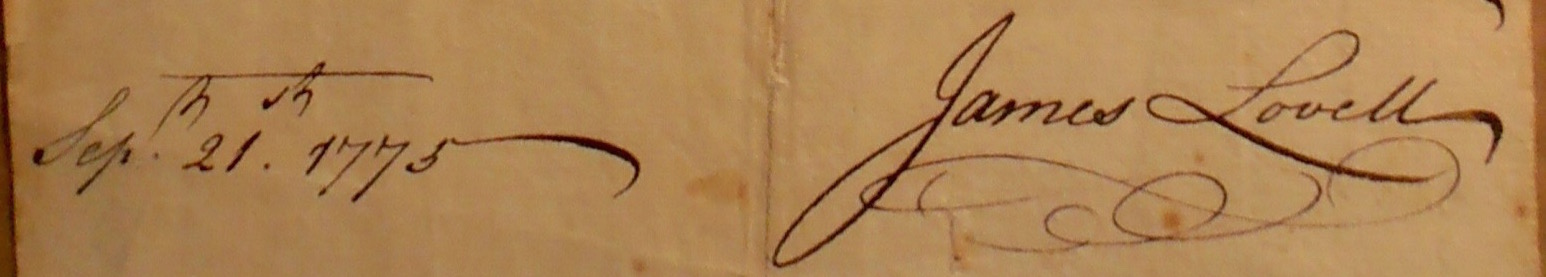 Sep.th 21.st 1775
James Lovell